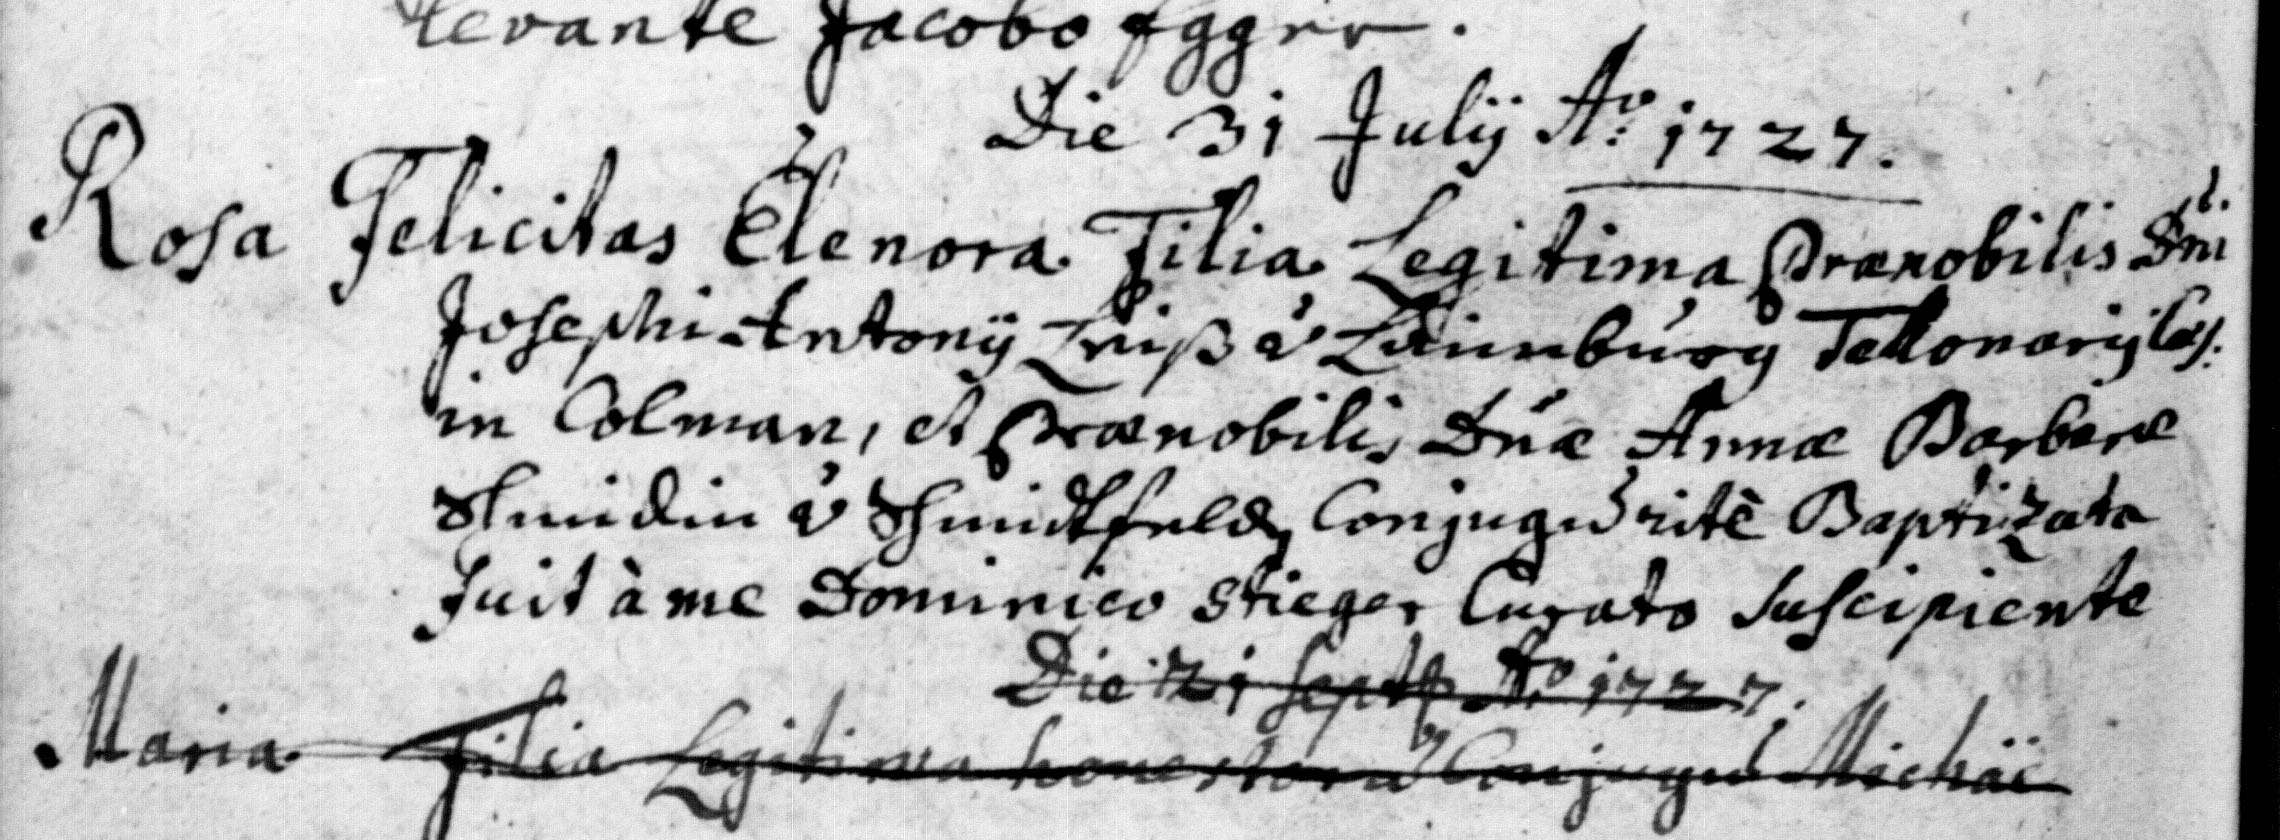 levante Jacobo Egger.
Die 31 Julij Ao: 1727.
Rosa Felicitas Elenora Filia Legitima Prænobilis Dni
Josephi Antonij à Tellonarij Cæs.
in Colman, et Prænobilis Dnæ Annæ Barbaræ
Schmidin à Schmidtfeld, Conjugu ritè Baptizata
fuit à me Dominico Stieger Curato Suscipiente
Die 21 Septb Ao 1727.
Maria Filia Legitima honestoru Conjugu Michäe